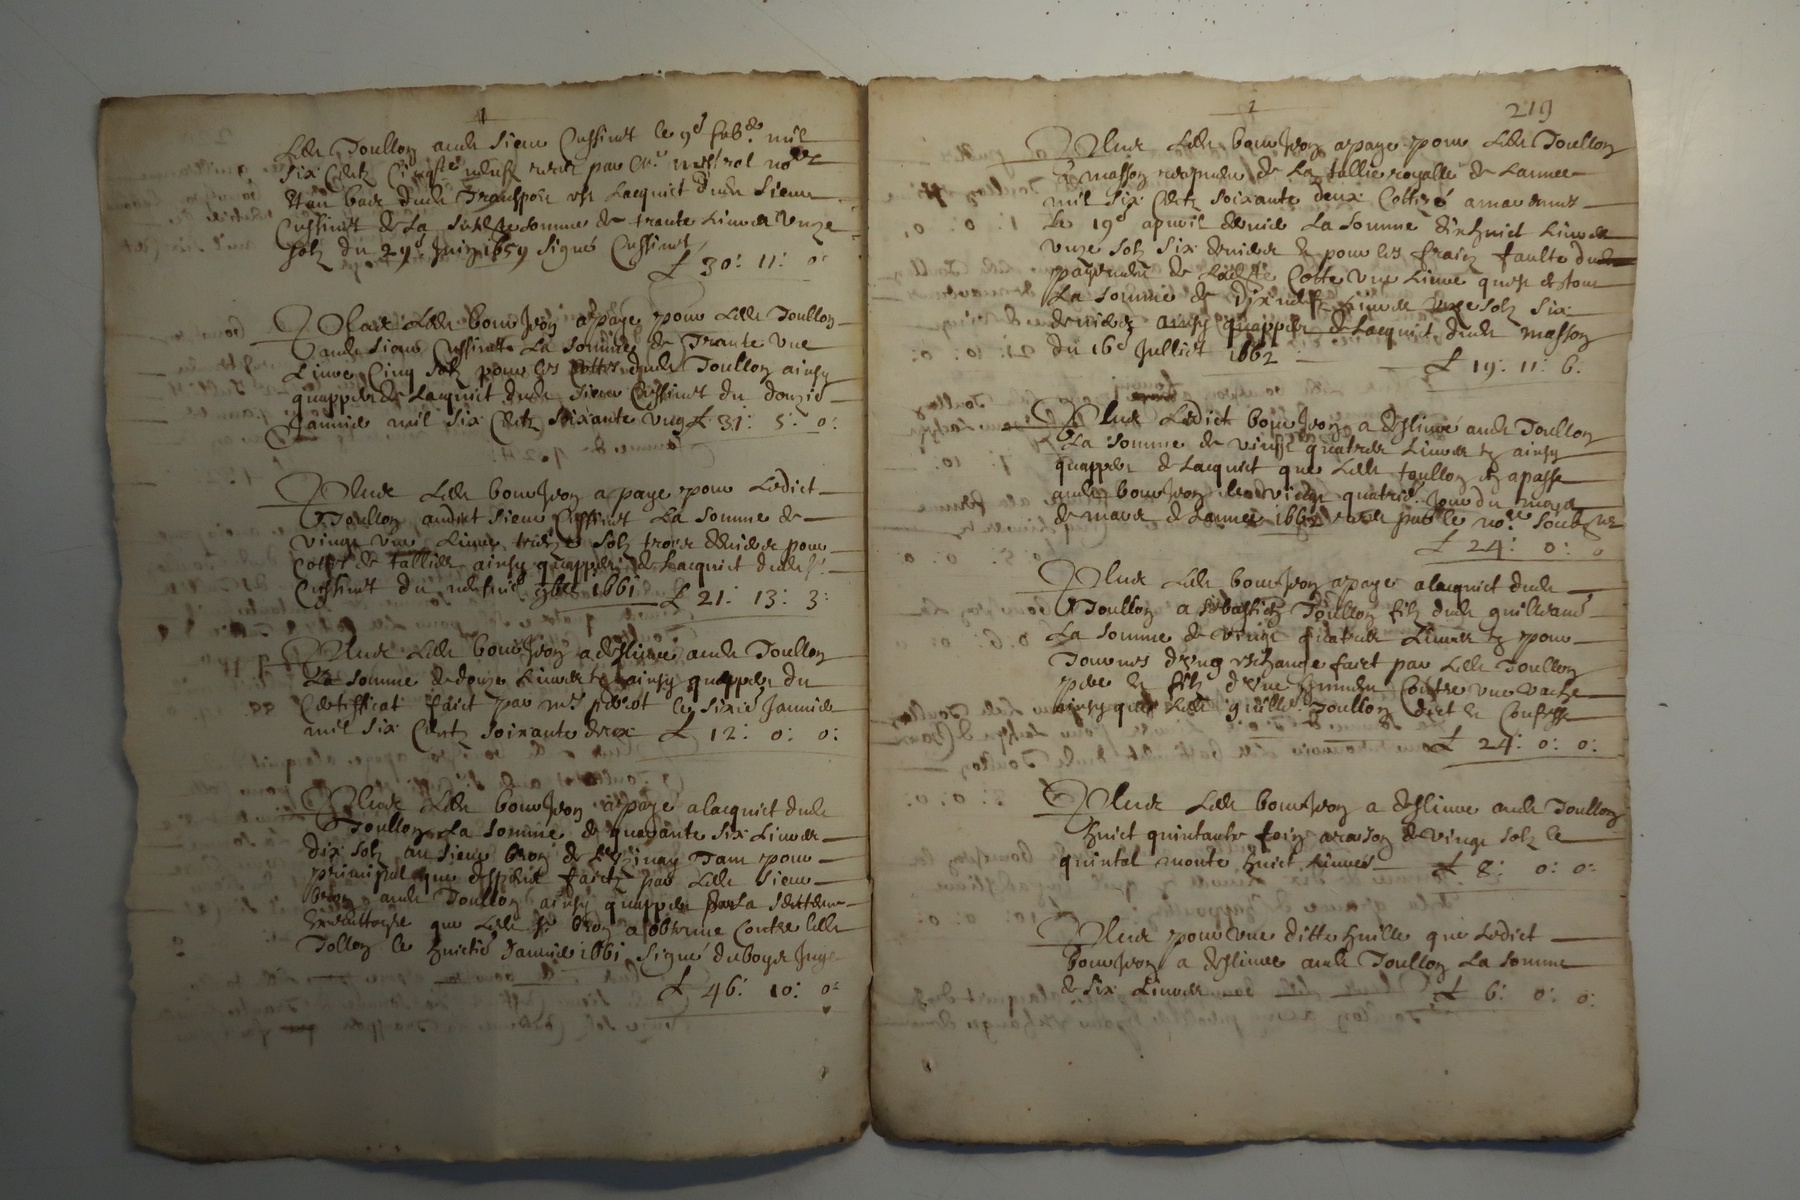 1
Ledt Toullon audt Sieur Cussinet le 9e feb. mil
six Centz Cinqte neuf receu par Me mistral nore
Et au bas dudt Transport est Lacquict dudt Sieur
Cussinet de La susdte somme de trante Livres Unze
solz du 29e Juin 1659 signé Cussinet
£ 30: 11: 0:
Plus Ledt bourJron a paye pour Ledt Toullon
audt Sieur Cussinet La somme de Trante Une
Livre Cinq solz pour les Cottes dudt Toullon ainsy
quappert de Lacquict dudt Sieur Cussinet du douzie
Janvier mil six Centz soixante ung £ 31: 5: 0:
Plus Ledt bourJron a paye pour Ledict
Toullon audict Sieur Cussinet La somme de
vingt une Livre treize solz trois deniers pour
Cottes de tallies ainsy quappert de Lacquict dudt Sr
Cussinet du neufvie 9bre 1661 £ 21: 13: 3:
Plus Ledt bourJron a deslivré audt Toullon
La somme de douze Livres tz ainsy quappert du
Certifficat faict par Mre le sixie Janvier
mil six Centz soixante deux £ 12: 0: 0:
Plus Ledt bourJron a paye a lacquict dudt
Toullon La somme de quarante six Livres
dix solz au Sieur bron de Tant pour
principal que despens faictz par Ledt Sieur
bron audt Toullon ainsy quappert par La Sentence
que Ledt Sr bron a obtenue Contre Ledt
Tollon le huictie Janvier 1661 Signé duboys Juge
£ 46: 10: 0:
2
219
Plus Ledt bourJron a paye pour Ledt Toullon
a masson recepveur de La tallie royalle de Lannee
mil six Centz soixante deux Cottisé a
Le 19e apvril dernier La somme dixhuict Livres
unze solz six deniers & pour les fraiz faulte du
payement de Ladte Cotte une Livre quest de tout
La somme de Dix neuf Livres unze solz six
deniers ainsy quappert de Lacquict dudt masson
du 16e Julliet 1662 £ 19: 11: 6:
Plus Ledict bourJron a deslivré audt Toullon
La somme de vingt quatre Livres tz ainsy
quappert de Lacquict que Ledt toullon en a passe
audt bourJron le vingt quatrie Jour du moys
de mars de Lannee 1662 receu par le nore soubzne
£ 24: 0: 0
Plus Ledt bourJron a paye a lacquict dudt
Toullon a sebastien Toullon filz dudt guilleaume
La somme de vingt quatre Livres tz pour
Tournes dung eschange faict par Ledt Toullon
pere & filz dune Jument Contre une vache
ainsy que Ledt guille Toullon dict & Confesse
£ 24: 0: 0:
Plus Ledt bourJron a deslivre audt Toullon
huict quintantz foin a raison de vingt solz le
quintal monte huict Livres £ 8: 0: 0:
Plus pour une ditte huille que Ledict
bourJron a deslivre audt Toullon La somme
de six Livres £ 6: 0: 0: